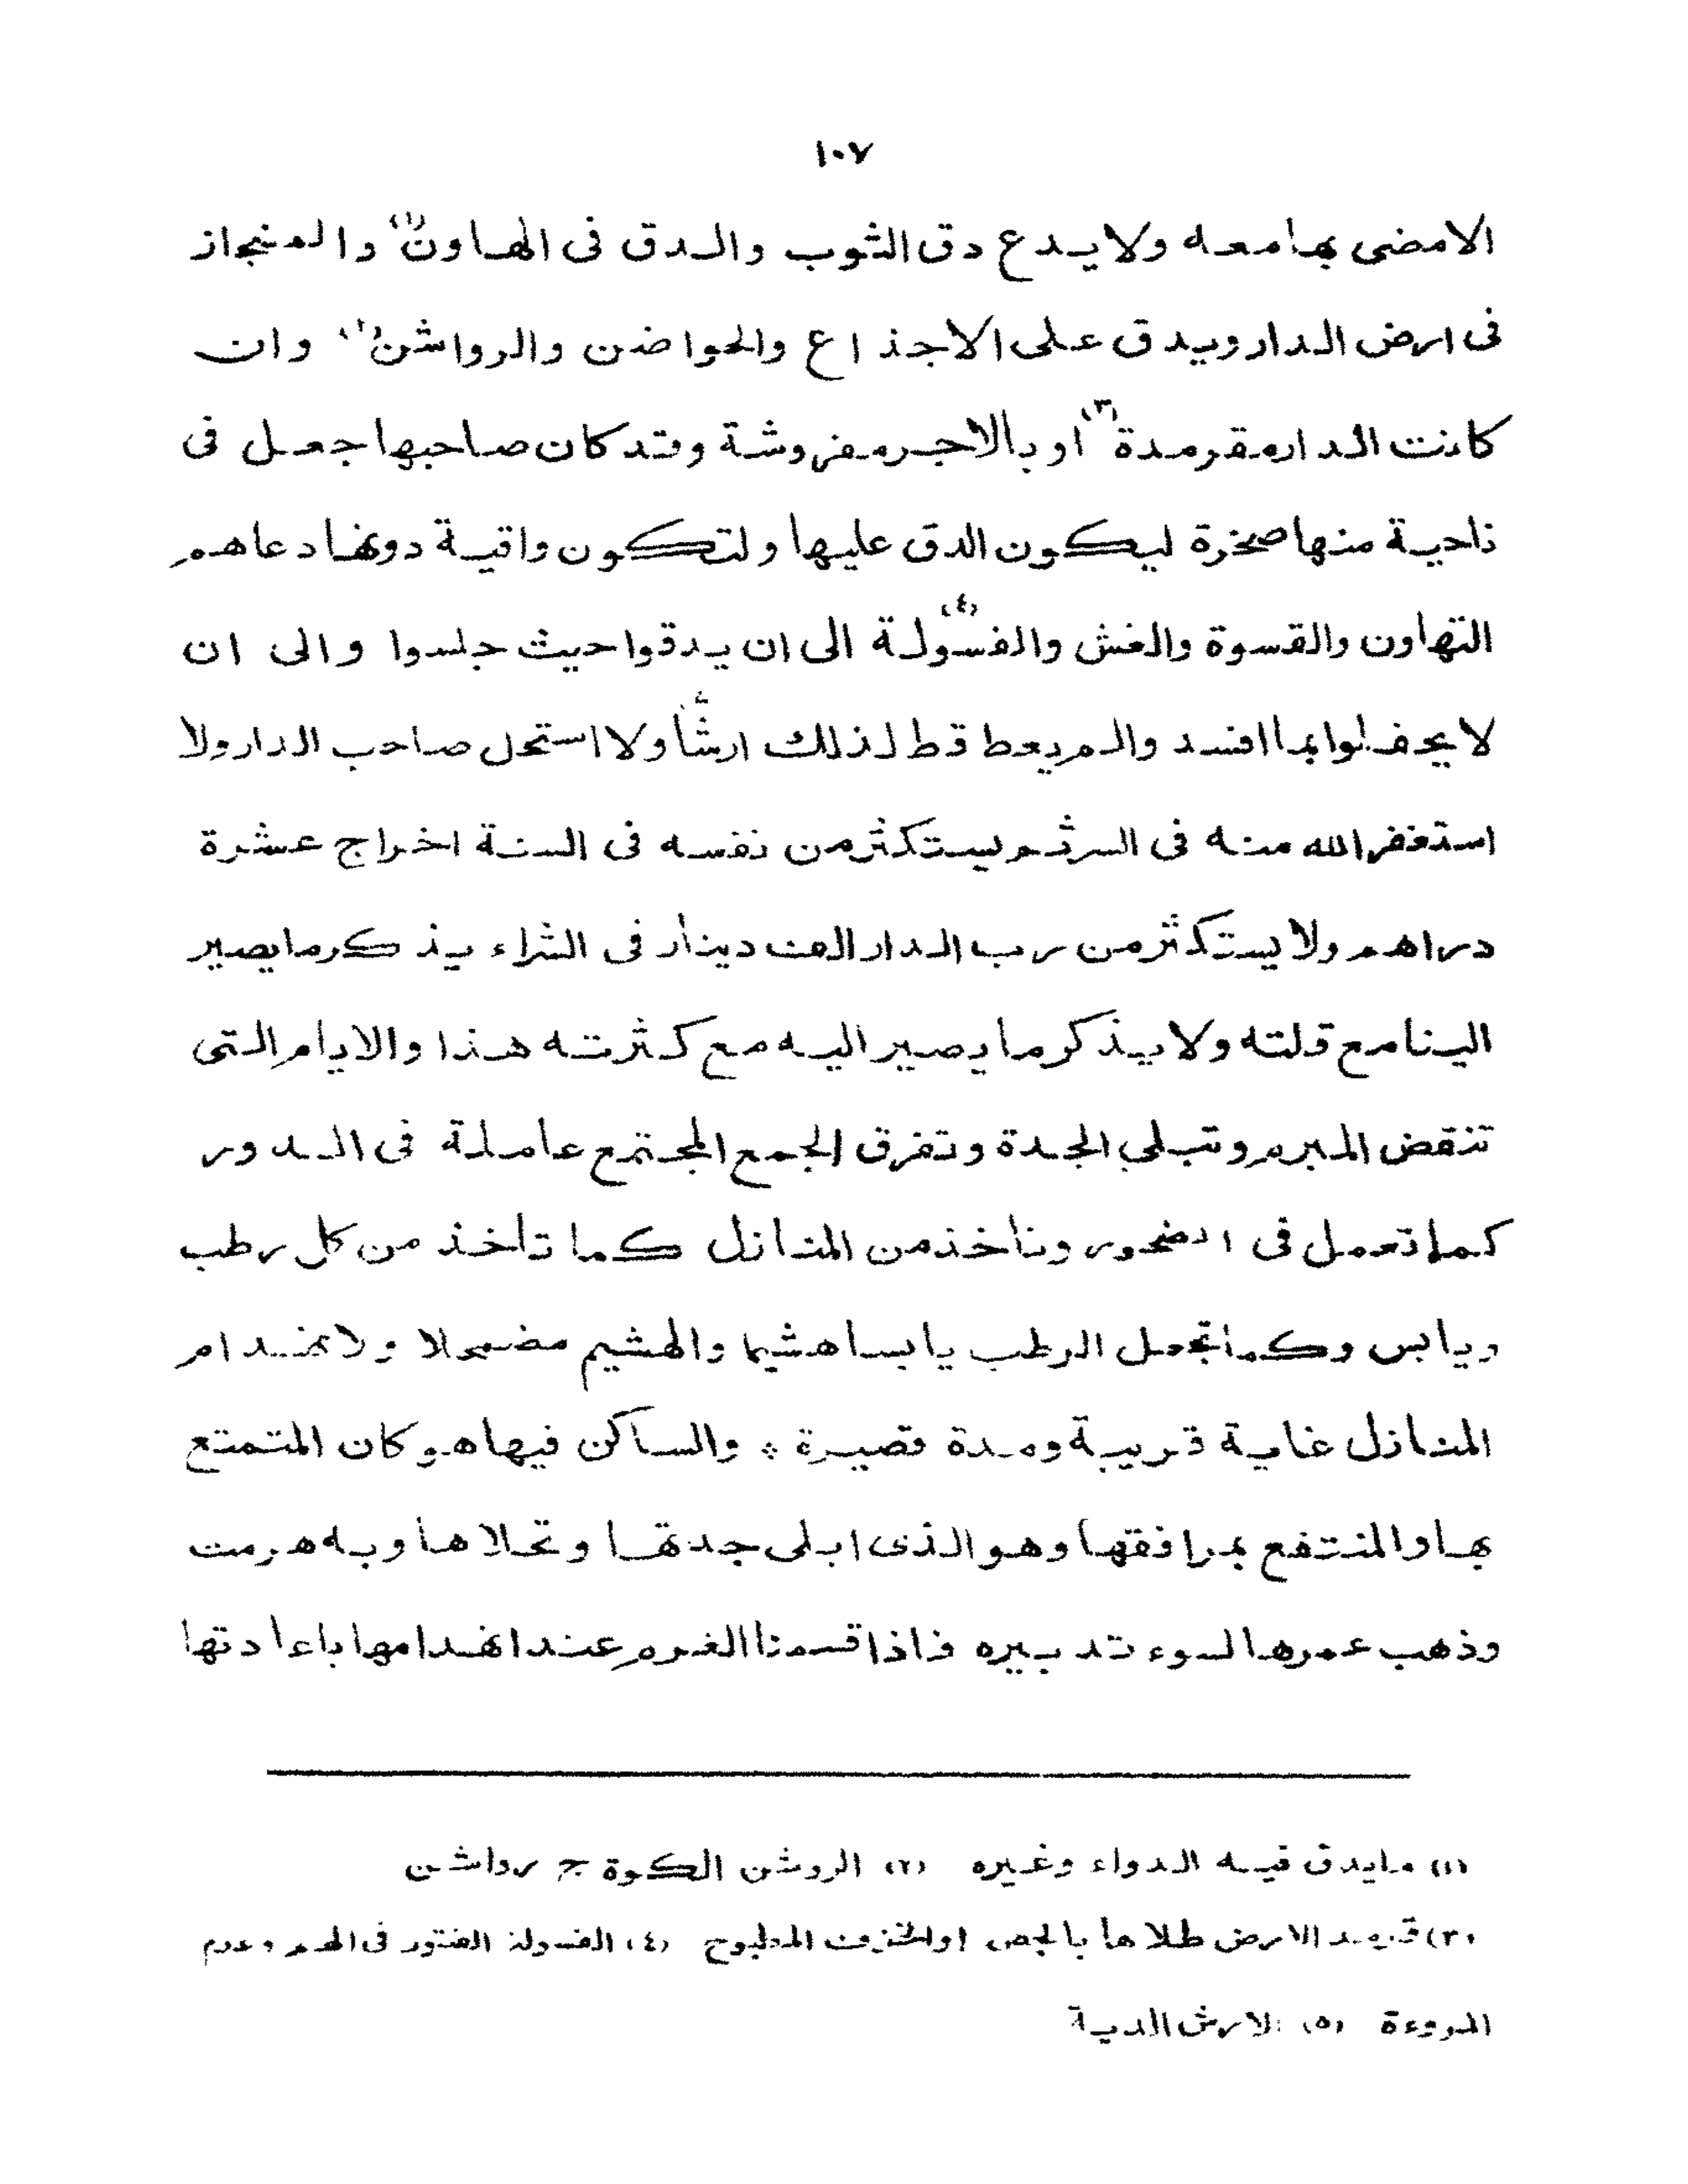 ١٠٧
الامضى بها معه ولا يدع دق الثوب والدق فى الهاون(١) والمنجاز
فى ارض الدار ويدق على الاجذاع والحواضن والرواشن(٢) وان
كانت الدار مقرمدة(٣) او بالاجر مفروشة وقد كان صاحبها جعل فى
ناحية منها صخرة ليكون الدق عليها ولتكون واقية دونها دعاهم
التهاون والقسوة والغش والفسولة(٤) الى ان يدقوا حيث جلسوا والى ان
لا يحفلوا بما افسد والم يعط قط لذلك ارشا(٥) ولا استحل صاحب الدار ولا
استغفر الله منه فى السر ثم يستكثر من نفسه فى السنة اخراج عشرة
دراهم ولا يستكثر من رب الدار الف دينار فى الشراء يذكر ما يصير
الينا مع قلته ولا يذكر ما يصير اليه مع كثرته هذا والايام التى
تنقض المبرم وتبلى الجدة وتفرق الجمع المجتمع عاملة فى الدور
كما تعمل فى الصخور وتأخذ من المنازل كما تأخذ من كل رطب
ويابس وكما تجعل الرطب يابسا هشيما والهشيم مضمحلا ولانهدام
المنازل غاية قريبة ومدة قصيرة * والساكن فيها هو كان المتمتع
بها والمنتفع بمرافقها وهو الذى ابلى جدتها وتحلاها وبه هرمت
وذهب عمرها لسوء تدبيره فاذا قسمنا الغرم عند انهدامها باعادتها
(١) مايدق فيه الدواء وغيره (٢) الروشن الكوة ج رواشن
(٣) قرمد الارض طلاها بالجص اوالخزف المطبوخ (٤) الفسولة الفتور فى الهم وعدم
المروءة (٥) الارش الدية